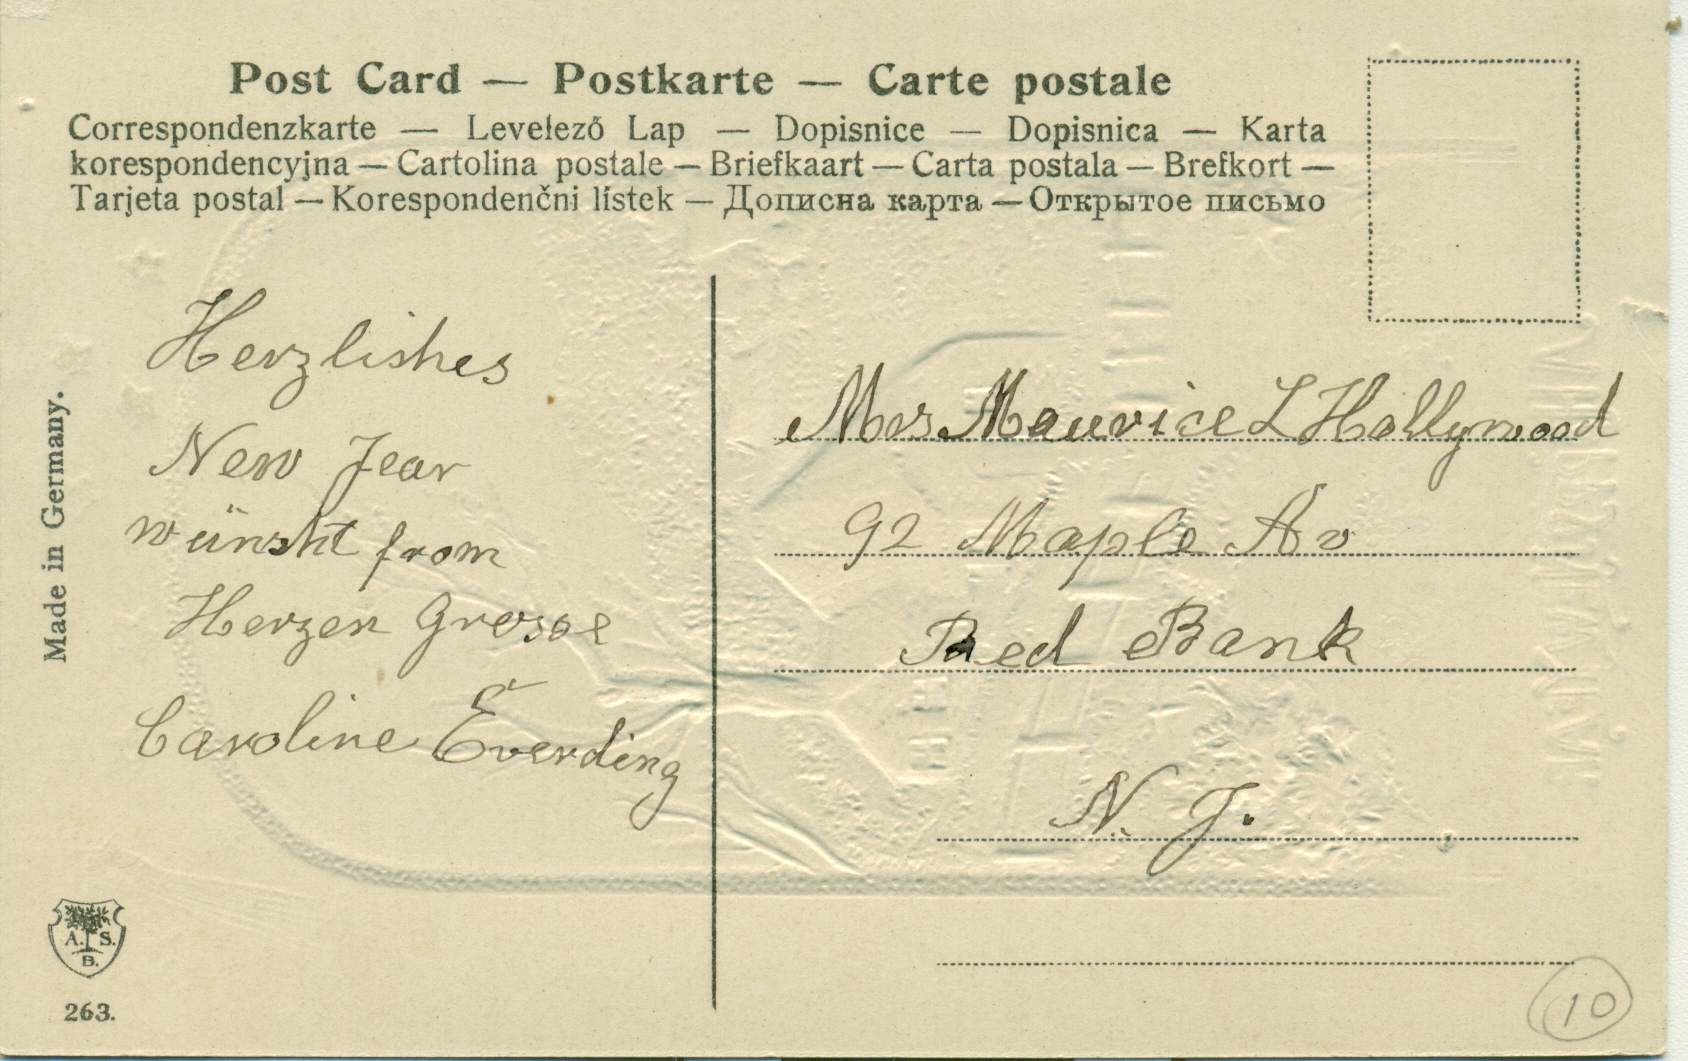 Post Card — Postkarte — Carte postale
Correspondenzkarte — Levelező Lap — Dopisnice — Dopisnica — Karta
korespondencyjna — Cartolina postale — Briefkaart — Carta postala — Brefkort —
Tarjeta postal — Korespondenčni lístek — Дописна карта — Открытое письмо
Herzlishes
New Jear
wünsht from
Herzen Grosse
Caroline Everding
Mrs Maurice L Hollywood
92 Maple Av
Red Bank
N. J.
Made in Germany.
A. S.
B.
263.
10